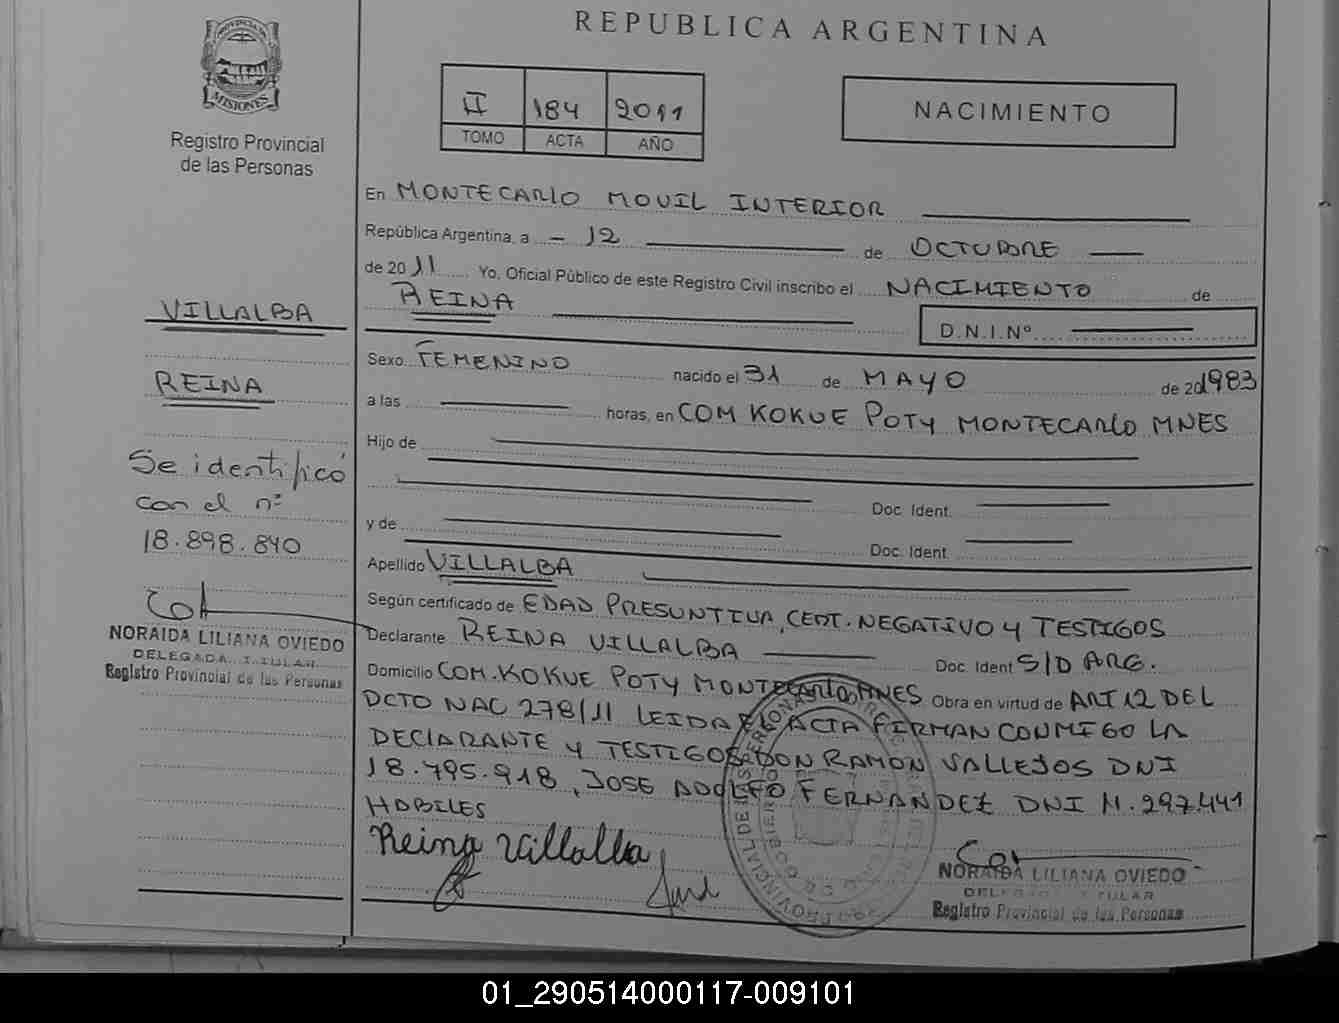 REPUBLICA ARGENTINA
PROVINCIA DE
MISIONES
Registro Provincial
de las Personas
II 184 2011
TOMO ACTA AÑO
NACIMIENTO
En MONTECARLO MOVIL INTERIOR
República Argentina, a - 12 de OCTUBRE
de 2011 Yo, Oficial Público de este Registro Civil inscribo el NACIMIENTO de
REINA
D.N.I.Nº
VILLALBA
REINA
Se identificó
con el nº
18.898.840
NORAIDA LILIANA OVIEDO
DELEGADA TITULAR
Registro Provincial de las Personas
Sexo FEMENINO nacido el 31 de MAYO de 201983
a las horas, en COM KOKUE POTY MONTECARLO MNES
Hijo de
Doc. Ident.
y de
Doc. Ident.
Apellido VILLALBA
Según certificado de EDAD PRESUNTIVA, CERT. NEGATIVO Y TESTIGOS
Declarante REINA VILLALBA Doc. Ident S/D ARG.
Domicilio COM. KOKUE POTY MONTECARLO MNES Obra en virtud de ART 12 DEL
DCTO NAC 278/11 LEIDA EL ACTA FIRMAN CONMIGO LA
DECLARANTE Y TESTIGOS DON RAMON VALLEJOS DNI
18.795.918, JOSE ADOLFO FERNANDEZ DNI 11.297.441
HABILES
Reina Villalba
NORAIDA LILIANA OVIEDO
DELEGADA TITULAR
Registro Provincial de las Personas
01_290514000117-009101